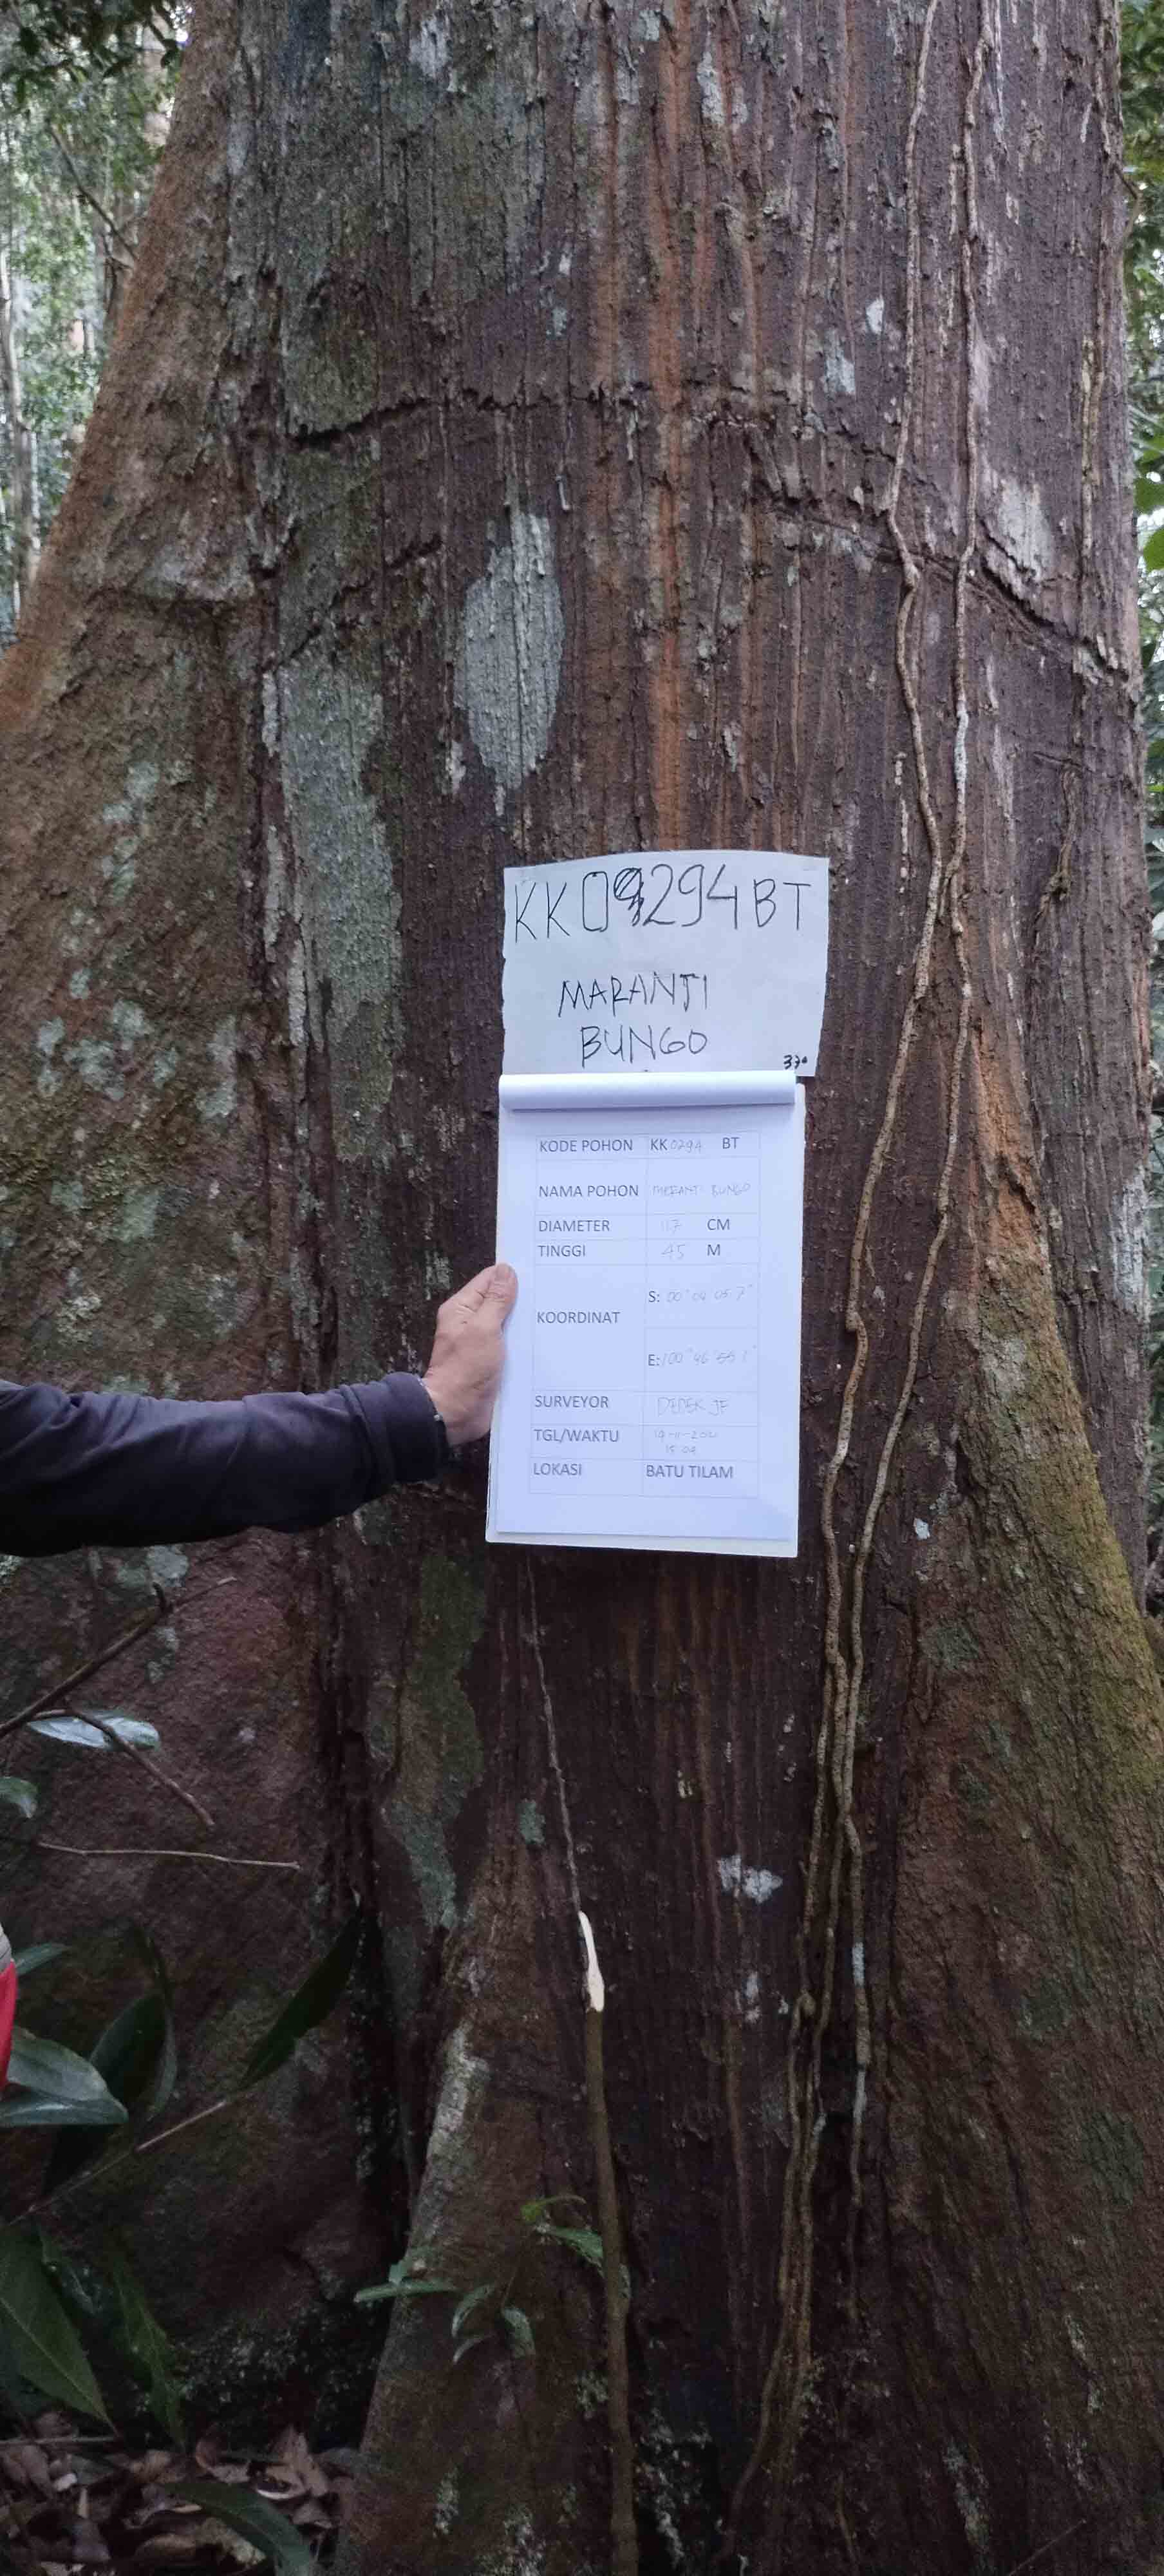 KK0294BT
MARANTI
BUNGO
KODE POHON KK 0294 BT
NAMA POHON MERANTI BUNGO
DIAMETER 117 CM
TINGGI 45 M
KOORDINAT
S: 00° 04' 05.7"
E: 100° 46'
SURVEYOR DEDEK JF
TGL/WAKTU
15 09
LOKASI BATU TILAM